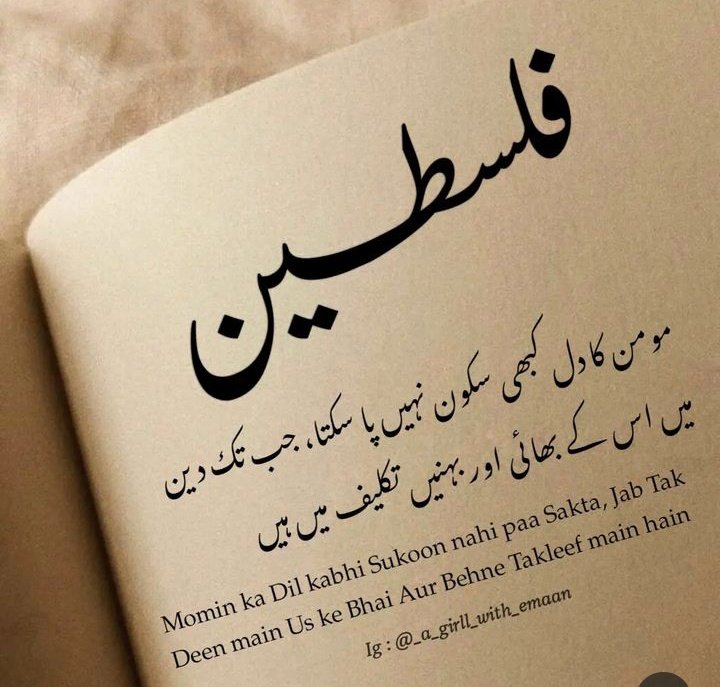 فلسطین
مومن کا دل کبھی سکون نہیں پا سکتا، جب تک دین
میں اس کے بھائی اور بہنیں تکلیف میں ہیں
Momin ka Dil kabhi Sukoon nahi paa Sakta, Jab Tak
Deen main Us ke Bhai Aur Behne Takleef main hain
Ig : @_a_girll_with_emaan